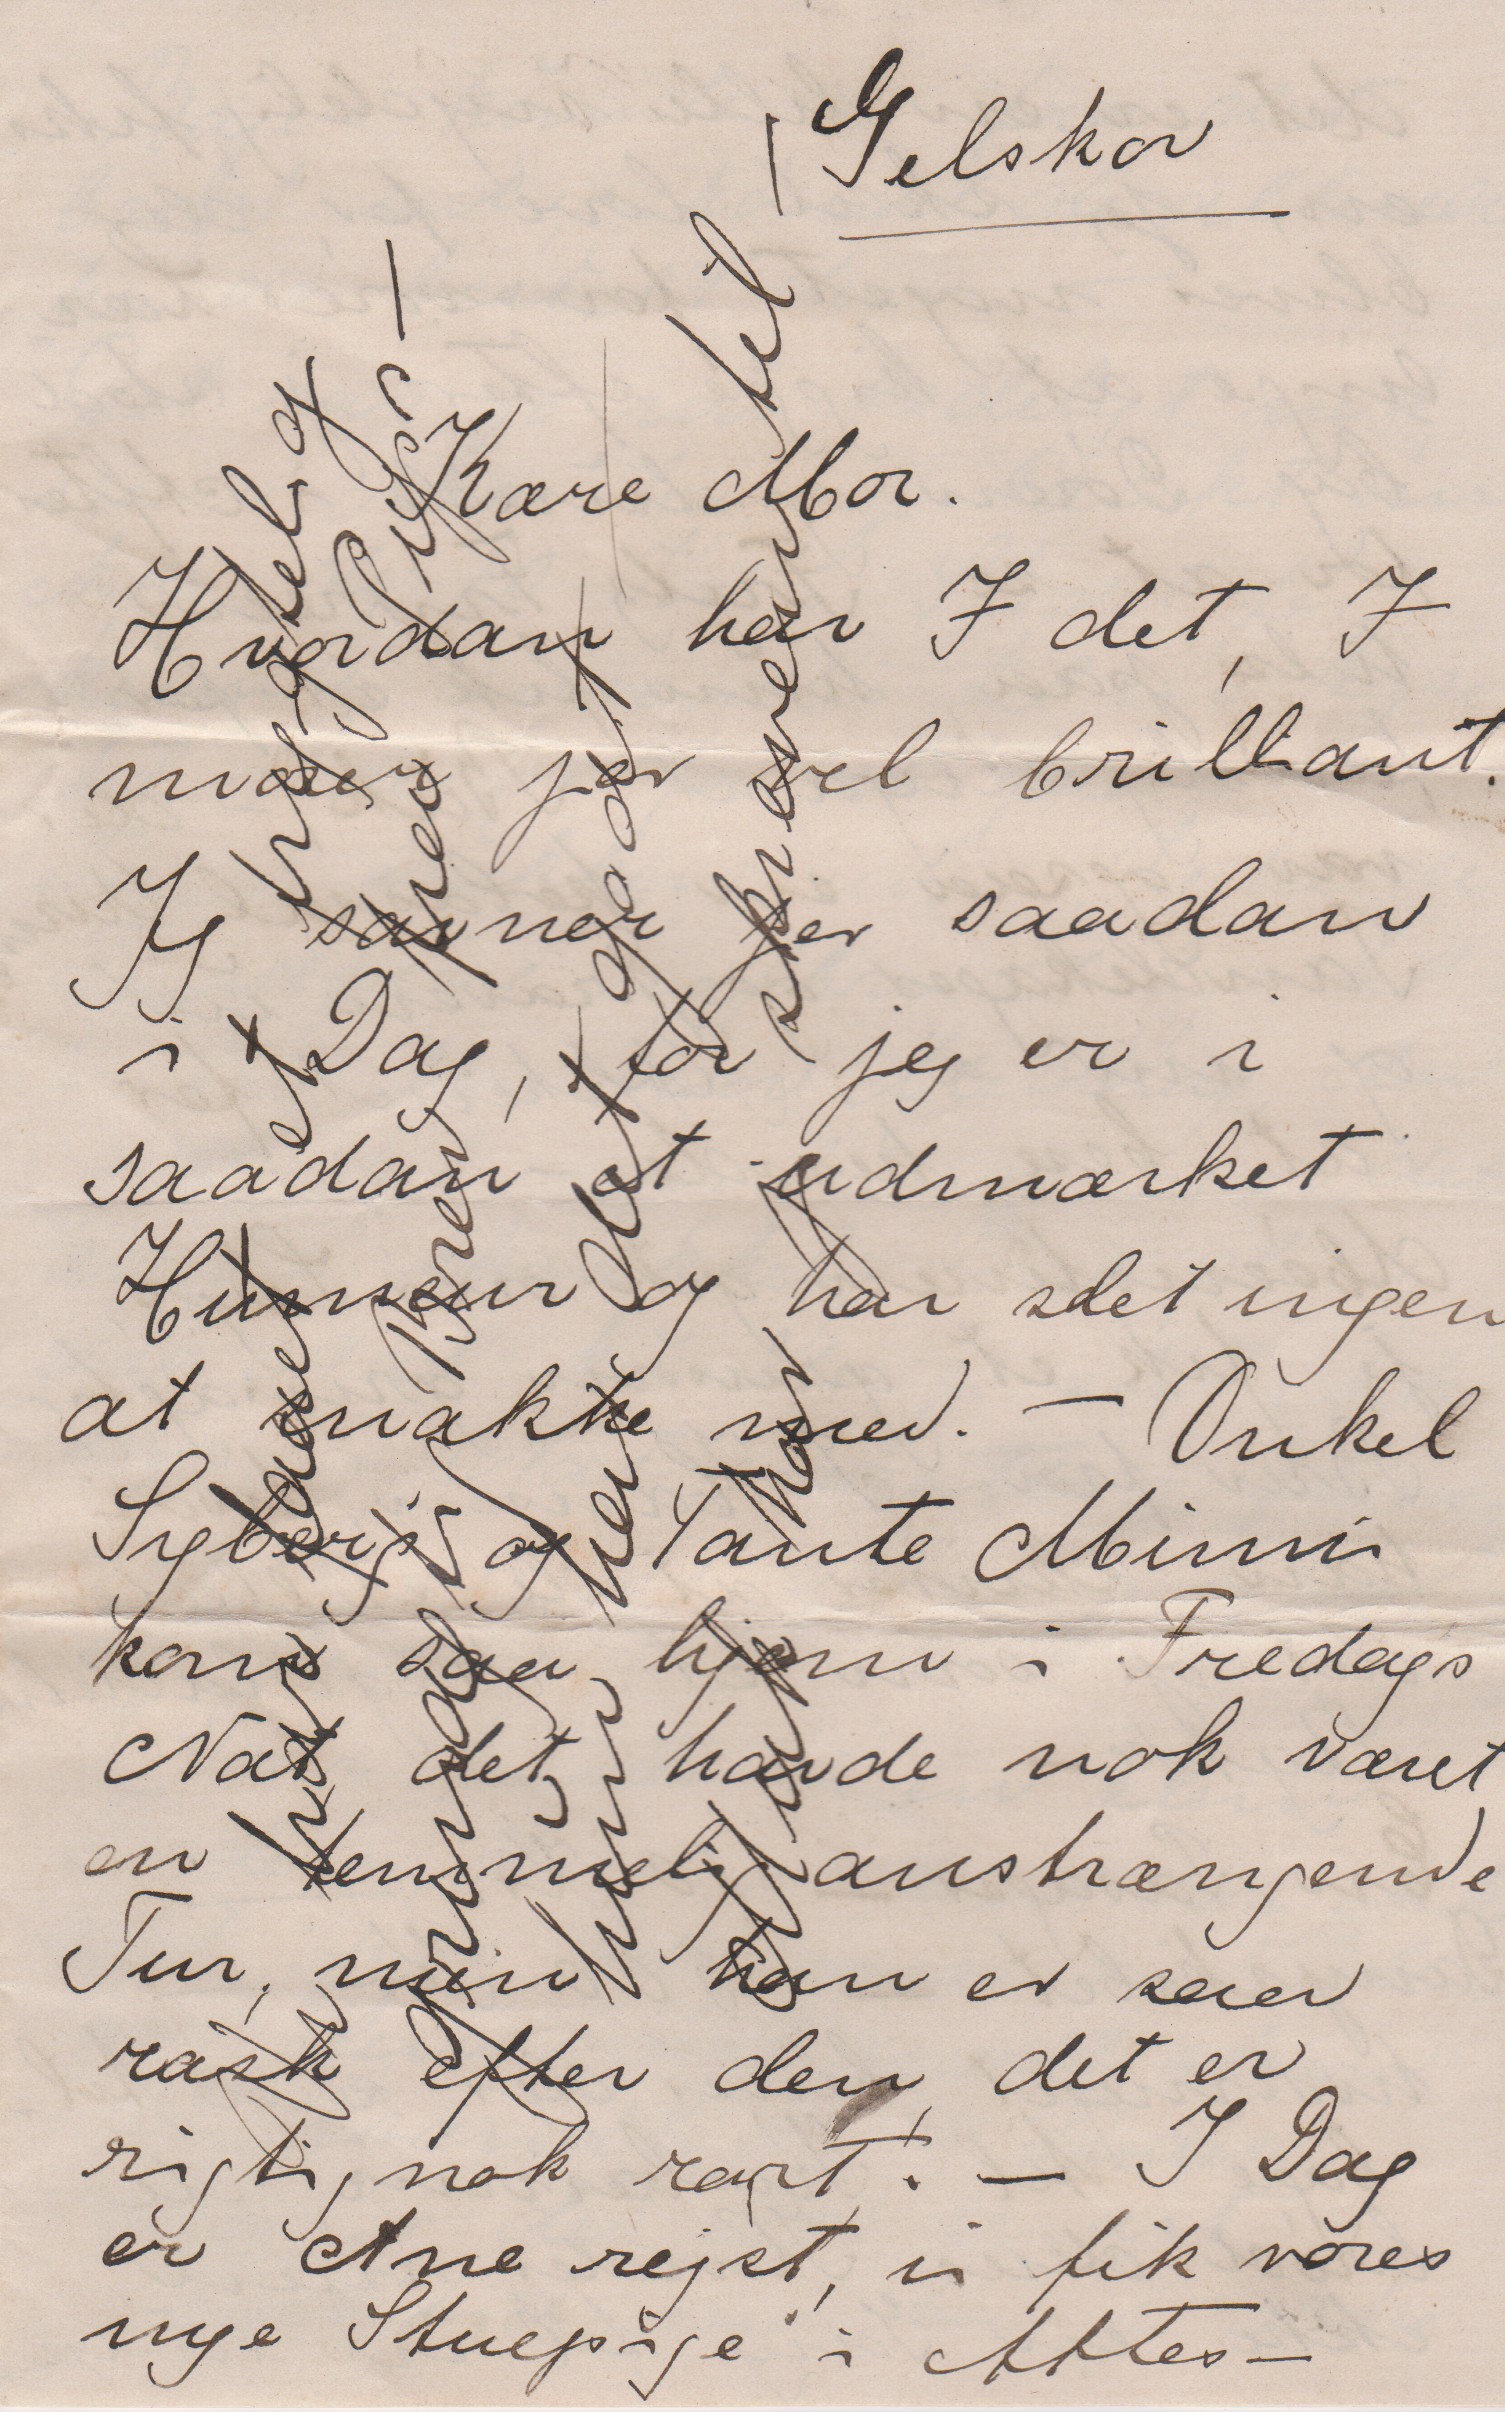 Gelskov
Kære Mor.
Hvordan har I det, I
morer jer vel brillant.
Jeg savner jer saadan
i Dag, for jeg er i
saadan et udmærket
Humeur og har slet ingen
at snakke med. — Onkel
Syberg og Tante Mimi
kom saa hjem i Fredags
Nat, det havde nok været
en temmelig anstrængende
Tur, men han er saa
rask efter den, det er
rigtignok rart. — I Dag
er Ane rejst, vi fik vores
nye Stuepige i Aftes —
et
Brev
men det godt
han skreven til —